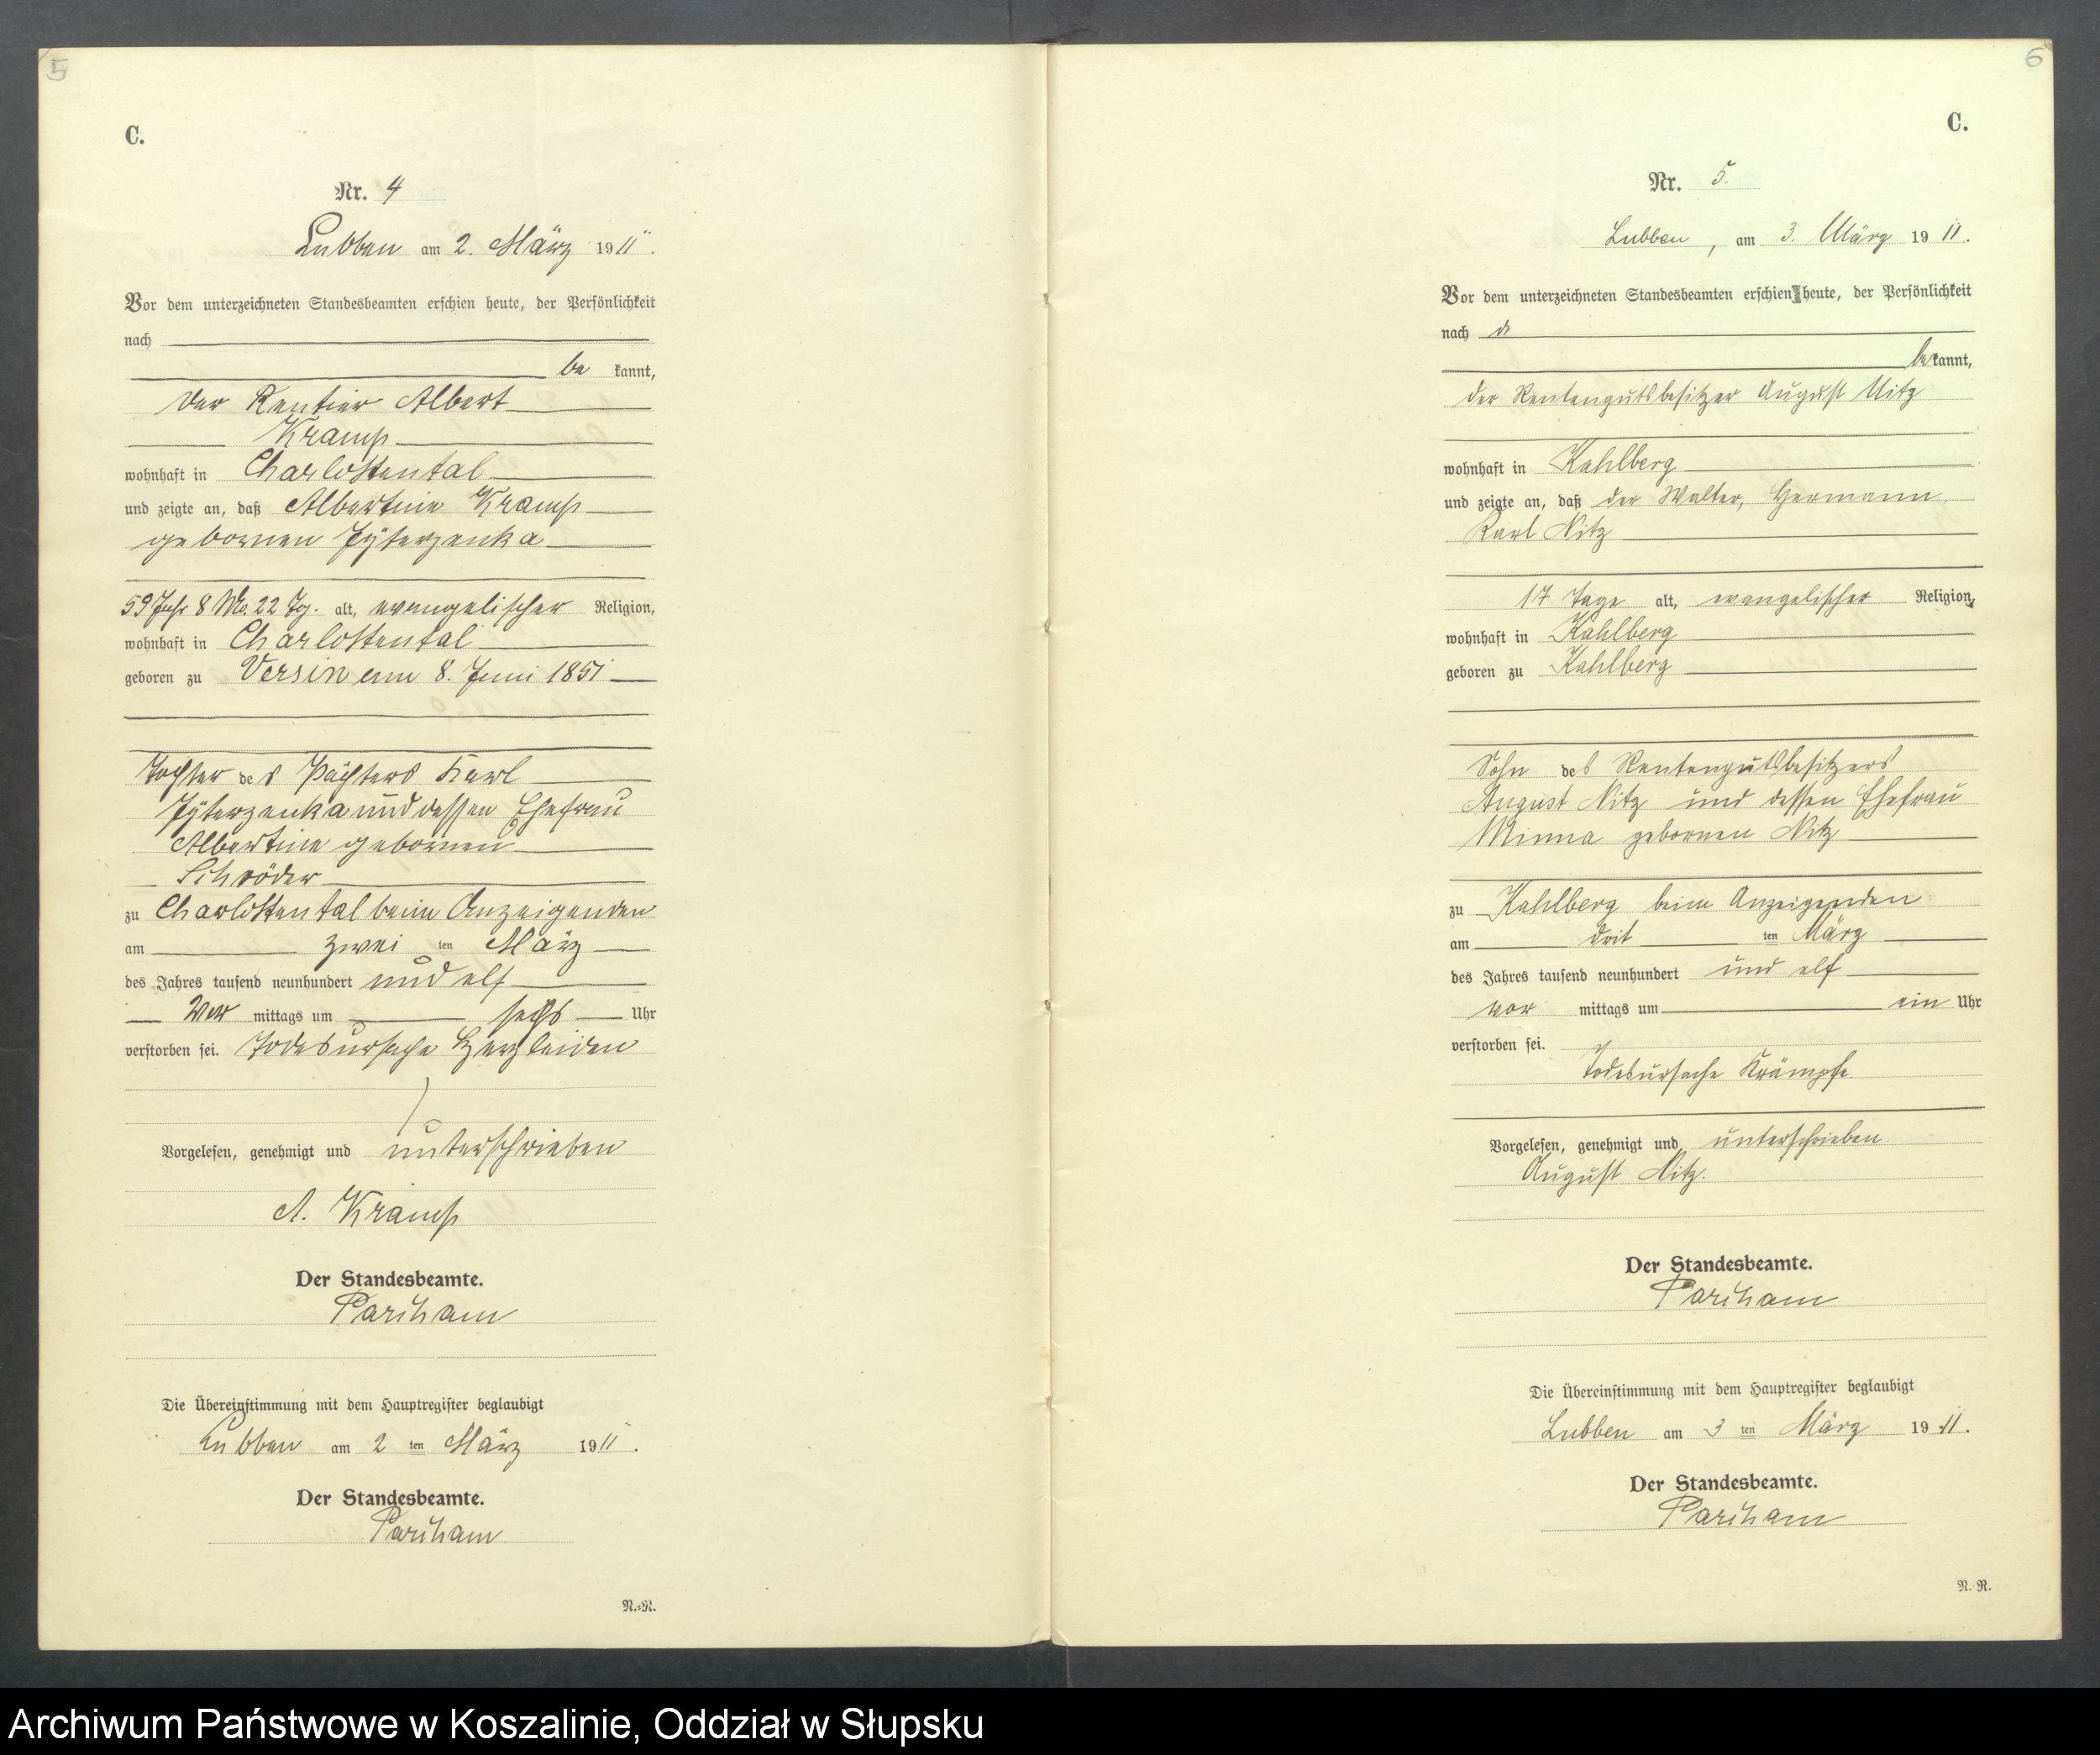 5
C.
Nr. 4
Lubben am 2. März 1911.
Vor dem unterzeichneten Standesbeamten erschien heute, der Persönlichkeit
nach
be kannt,
der Rentier Albert
Kramp
wohnhaft in Charlottental
und zeigte an, daß Albertine Kramp
gebornen
59 Jahr 8 Mo. 22 Tg. alt, evangelischer Religion,
wohnhaft in Charlottental
geboren zu Versin am 8. Juni 1851
Tochter des Pächters Karl
und dessen Ehefrau
Albertine gebornen
Schröder
zu Charlottental beim Anzeigenden
am zwei ten März
des Jahres tausend neunhundert und elf
Vor mittags um sechs Uhr
verstorben sei. Todesursache Herzleiden
Vorgelesen, genehmigt und unterschrieben
A. Kramp
Der Standesbeamte.
Die Übereinstimmung mit dem Hauptregister beglaubigt
Lubben am 2 ten März 1911.
Der Standesbeamte.
N.-R.
6
C.
Nr. 5.
Lubben, am 3. März 1911.
Vor dem unterzeichneten Standesbeamten erschien heute, der Persönlichkeit
nach
bekannt,
der Rentengutsbesitzer August Nitz
wohnhaft in Kahlberg
und zeigte an, daß der Walter, Hermann,
Karl Nitz
17 Tage alt, evangelischer Religion,
wohnhaft in Kahlberg
geboren zu Kahlberg
Sohn des Rentengutsbesitzers
August Nitz und dessen Ehefrau
Minna gebornen Nitz
zu Kahlberg beim Anzeigenden
am drit ten März
des Jahres tausend neunhundert und elf
vor mittags um ein Uhr
verstorben sei.
Todesursache Krämpfe
Vorgelesen, genehmigt und unterschrieben
August Nitz.
Der Standesbeamte.
Die Übereinstimmung mit dem Hauptregister beglaubigt
Lubben am 3 ten März 1911.
Der Standesbeamte.
N. R.
Archiwum Państwowe w Koszalinie, Oddział w Słupsku